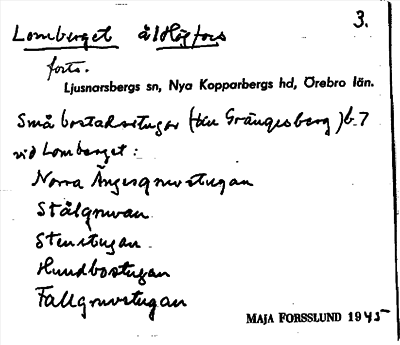 3.
Lomberget å Högfors
forts.
Ljusnarsbergs sn, Nya Kopparbergs hd, Örebro län.
Små bostadsstugor (till Grängesberg) b. 7
vid Lomberget:
Norra Ängesgruvstugan
Stålgruvan
Stenstugan
Hundbostugan
Fallgruvstugan
MAJA FORSSLUND 1945